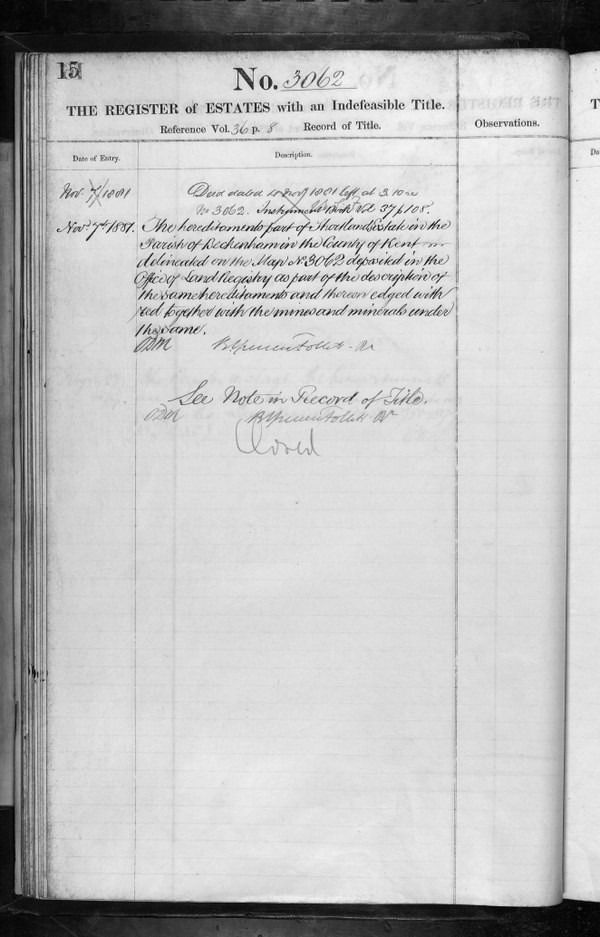 15
No. 3062
THE REGISTER of ESTATES with an Indefeasible Title.
Reference Vol. 36 p. 8 Record of Title.
Observations.
Date of Entry.
Description.
Nov. 7/1881
Deed dated Nov 1881 left at 3.10
No 3062. Instrument Book Vol 37 p 108.
Nov. 7th 1881.
The hereditaments part of Shortlands Estate in the
Parish of Beckenham in the County of Kent
delineated on the Map No 3062 deposited in the
Office of Land Registry as part of the description of
the same hereditaments and thereon edged with
red together with the mines and minerals under
the same.
See Note in Record of Title.
Closed